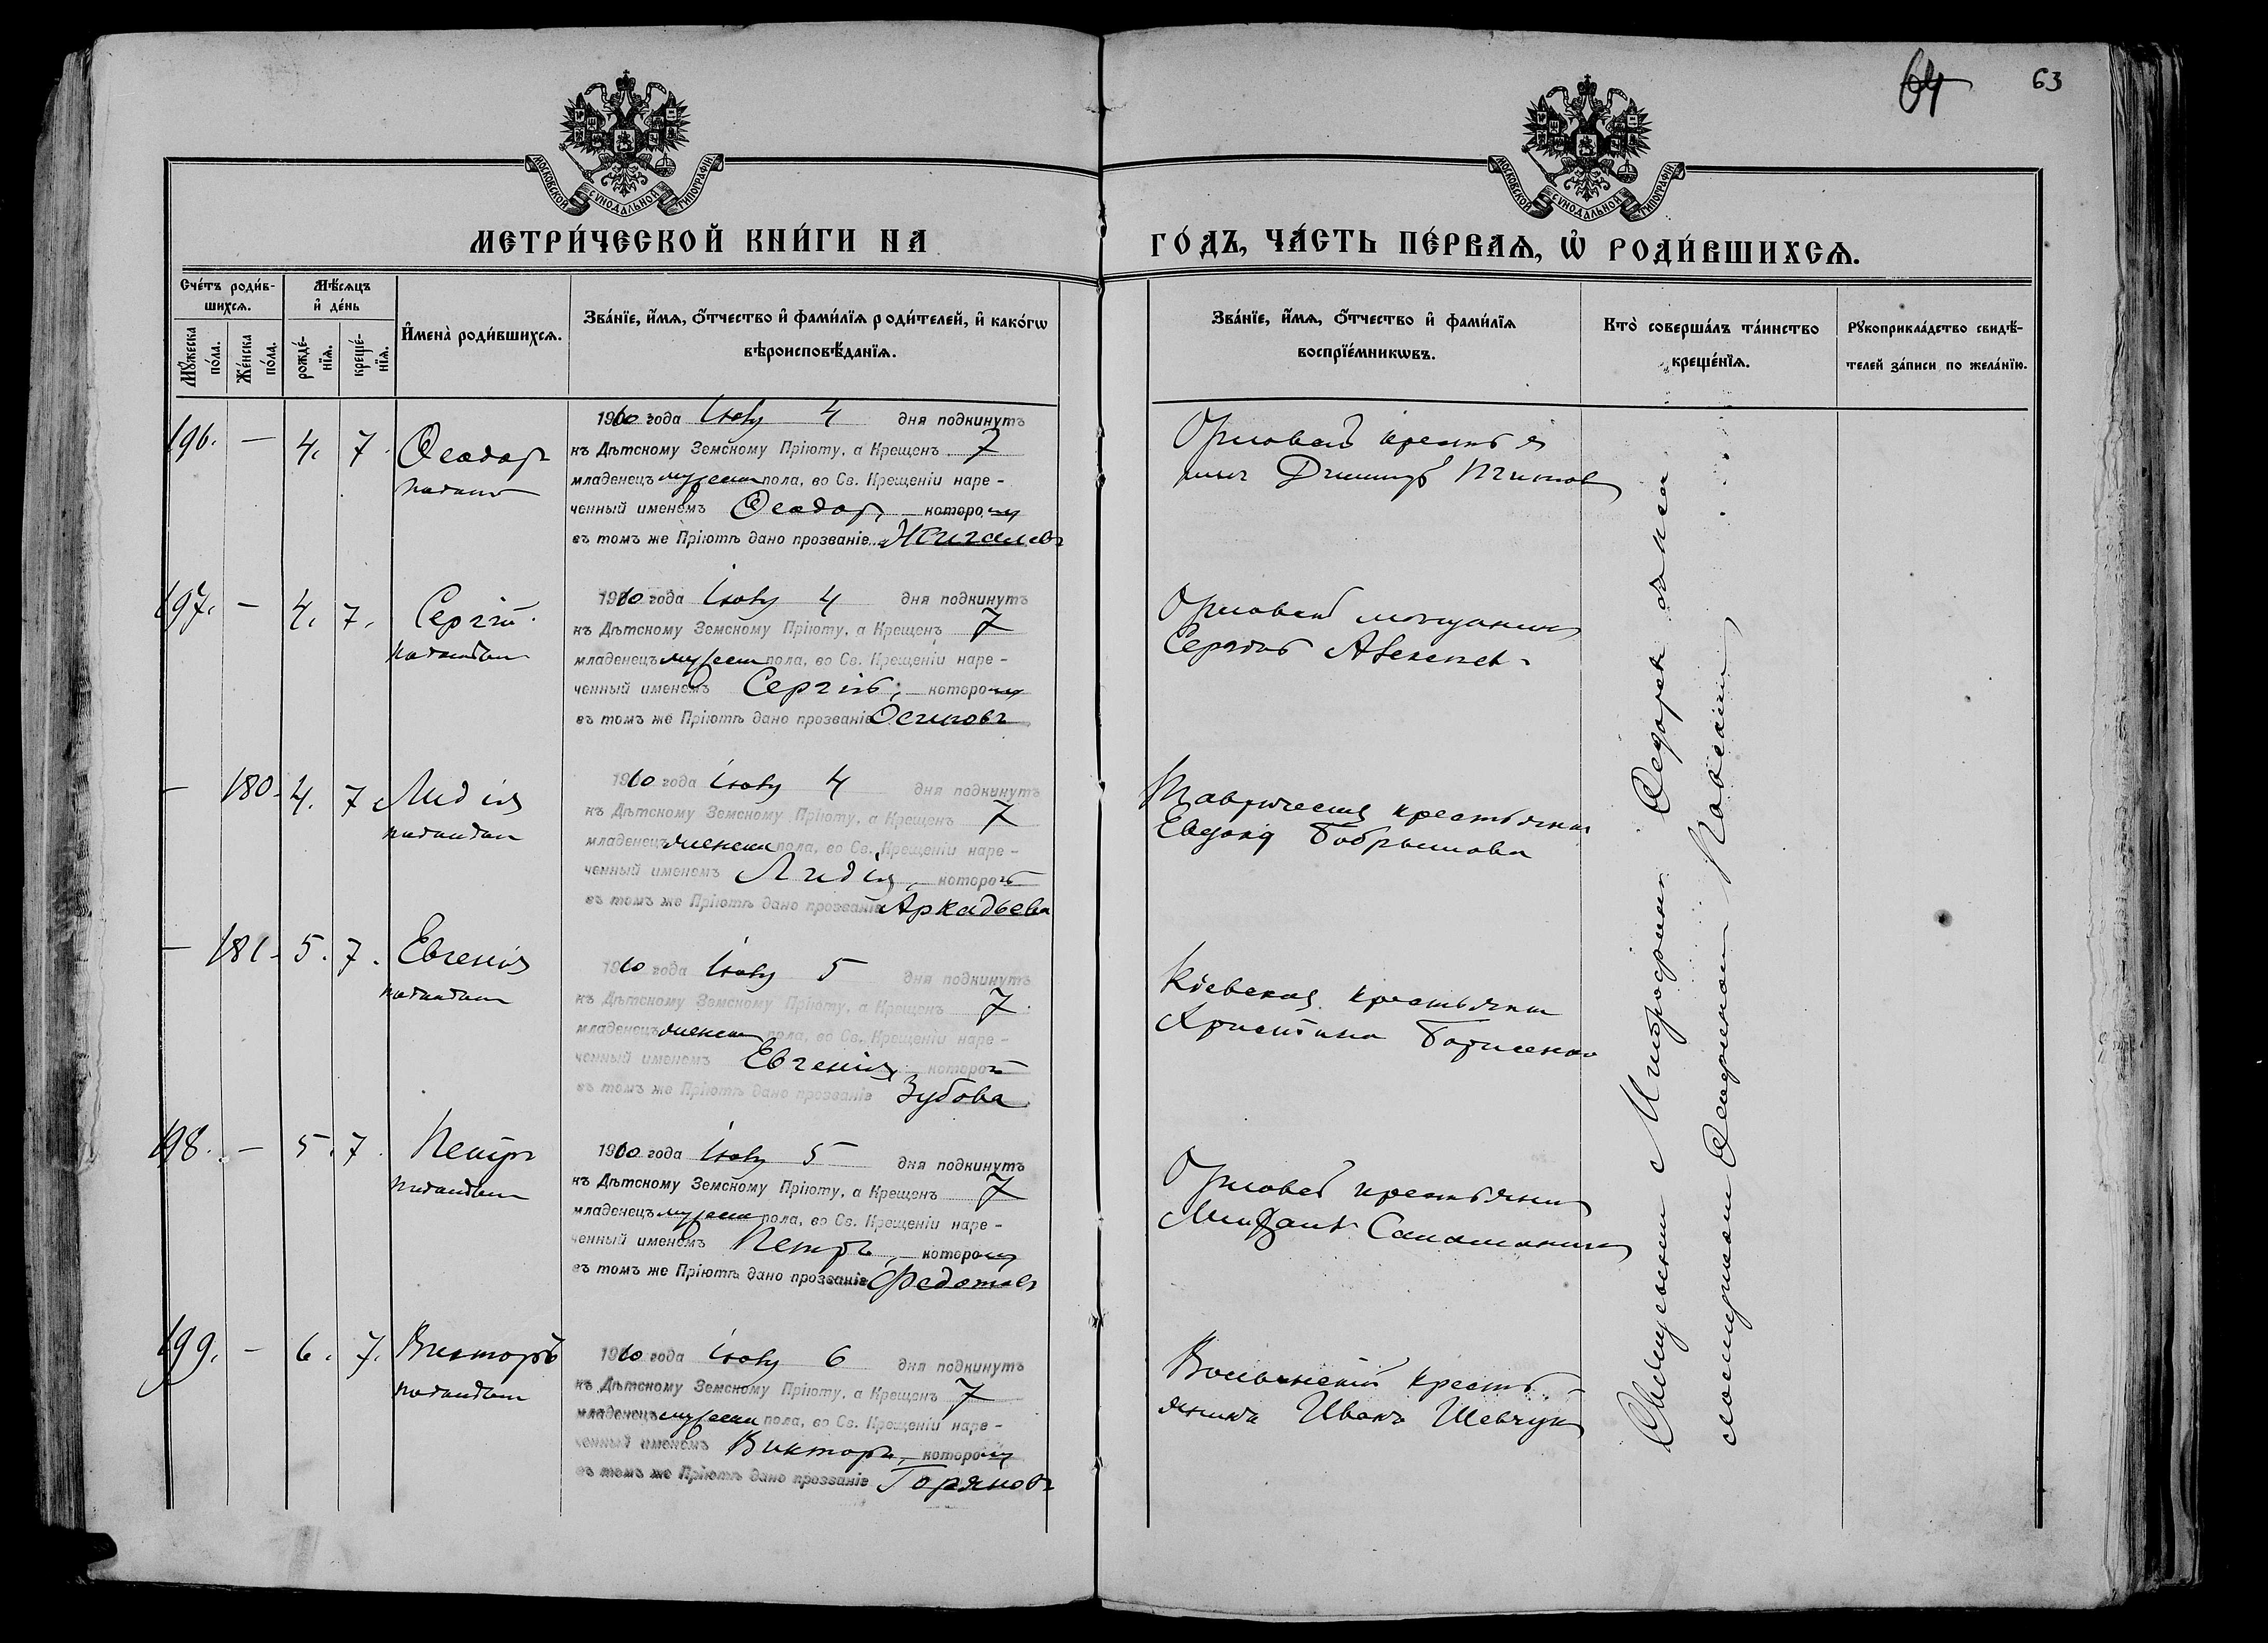 64 63
МОСКОВСКОЙ СѴНОДАЛЬНОЙ ТИПОГРАФІИ
МОСКОВСКОЙ СѴНОДАЛЬНОЙ ТИПОГРАФІИ
МЕТРИ́ЧЕСКОЙ КНИ́ГИ НА
ГО́ДЪ, ЧА́СТЬ ПЕ́РВАѦ, Ѡ҆ РОДИ́ВШИХСѦ.
Сче́тъ роди́в-
шихсѧ.
Мꙋ́жеска по́ла.
Же́нска по́ла.
Мѣ́сѧцъ
и҆ де́нь
рожде́-
нїѧ.
креще́-
нїѧ.
И҆мена̀ роди́вшихсѧ.
Зва́нїе, и҆́мѧ, ѻ҆́тчество и҆ фами́лїѧ роди́телей, и҆ како́гѡ
вѣроисповѣ́данїѧ.
Зва́нїе, и҆́мѧ, ѻ҆́тчество и҆ фами́лїѧ
воспрїе́мникѡвъ.
Кто̀ соверша́лъ та́инство
креще́нїѧ.
Рꙋкоприкла́дство свидѣ́-
телей за́писи по жела́нїю.
196. — 4. 7. Ѳеодоръ
1910 года Іюля 4 дня подкинутъ
къ Дѣтскому Земскому Пріюту, а Крещенъ 7
младенецъ мужеска пола, во Св. Крещеніи наре-
ченный именемъ Ѳеодоръ, которому
въ томъ же Пріютѣ дано прозваніе
Орловскій крестья
нинъ Димитрій
197. — 4. 7. Сергій
1910 года Іюля 4 дня подкинутъ
къ Дѣтскому Земскому Пріюту, а Крещенъ 7
младенецъ мужеска пола, во Св. Крещеніи наре-
ченный именемъ Сергій, которому
въ томъ же Пріютѣ дано прозваніе Осиповъ
Орловскій мѣщанинъ
Сергѣй
— 180. 4. 7 Лидія
1910 года Іюля 4 дня подкинутъ
къ Дѣтскому Земскому Пріюту, а Крещенъ 7
младенецъ женска пола, во Св. Крещеніи наре-
ченный именемъ Лидія, которой
въ томъ же Пріютѣ дано прозваніе Аркадьева
Таврическая крестьянка
Евдокія Бобрышова
— 181. 5. 7. Евгенія
1910 года Іюля 5 дня подкинутъ
къ Дѣтскому Земскому Пріюту, а Крещенъ 7
младенецъ женска пола, во Св. Крещеніи наре-
ченный именемъ Евгенія, которой
въ томъ же Пріютѣ дано прозваніе Зубова
Кіевская крестьянка
Христина Борисенко
198. — 5. 7. Петръ
1910 года Іюля 5 дня подкинутъ
къ Дѣтскому Земскому Пріюту, а Крещенъ 7
младенецъ мужеска пола, во Св. Крещеніи наре-
ченный именемъ Петръ, которому
въ томъ же Пріютѣ дано прозваніе Федотовъ
Орловскій крестьянинъ
199. — 6. 7. Викторъ
1910 года Іюля 6 дня подкинутъ
къ Дѣтскому Земскому Пріюту, а Крещенъ 7
младенецъ мужеска пола, во Св. Крещеніи наре-
ченный именемъ Викторъ, которому
въ томъ же Пріютѣ дано прозваніе Горяновъ
Волынскій кресть-
янинъ Иванъ Шевчукъ
Священникъ Митрофанъ
псаломщикомъ